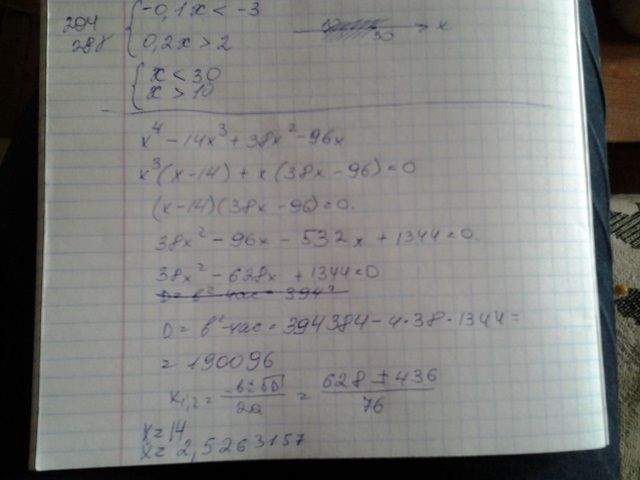 294
288
{ -0,1x < -3
0,2x > 2
10 30 → x
{ x < 30
x > 10
x⁴ - 14x³ + 38x² - 96x
x³(x-14) + x(38x-96)=0
(x-14)(38x-96)=0.
38x² - 96x - 532x + 1344=0.
38x² - 628x + 1344=0
D= b²-4ac= 394²
D= b²-4ac= 394384-4·38·1344=
= 190096
x₁,₂ = -b±√D / 2a = 628 ± 436 / 76
x=14
x= 2,5263157